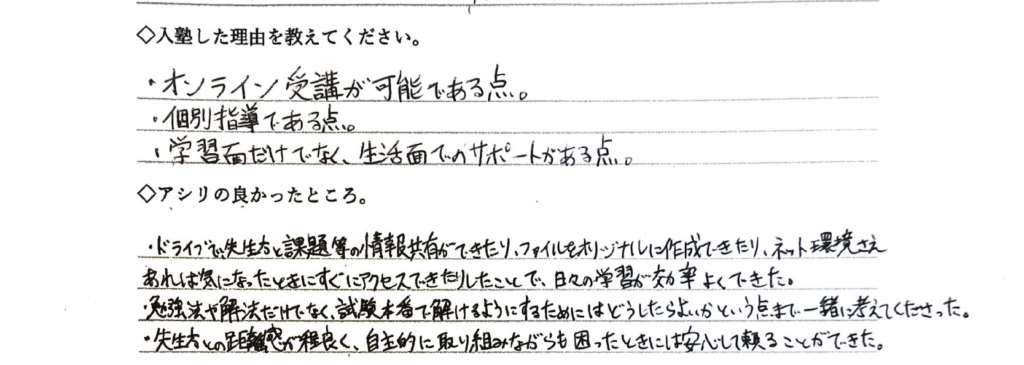 ◇入塾した理由を教えてください。
・オンライン受講が可能である点。
・個別指導である点。
・学習面だけでなく、生活面でのサポートがある点。
◇アシリの良かったところ。
・ドライブで先生方と課題等の情報共有ができたり、ファイルをオリジナルに作成できたり、ネット環境さえ
あれば気になったときにすぐにアクセスできたりしたことで、日々の学習が効率よくできた。
・勉強法や解法だけでなく、試験本番で解けるようにするためにはどうしたらよいかという点まで一緒に考えてくださった。
・先生方との距離感が程良く、自主的に取り組みながらも困ったときには安心して頼ることができた。